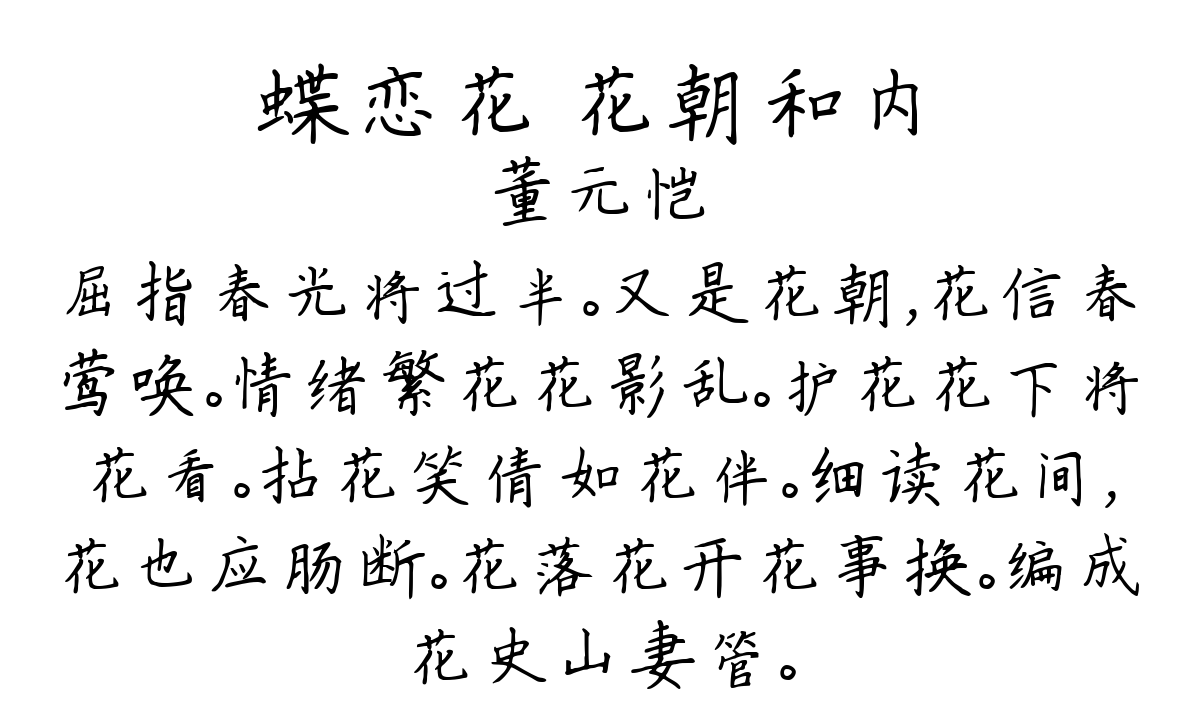 蝶恋花 花朝和内
董元恺
屈指春光将过半。又是花朝,花信春
莺唤。情绪繁花花影乱。护花花下将
花看。拈花笑倩如花伴。细读花间,
花也应肠断。花落花开花事换。编成
花史山妻管。